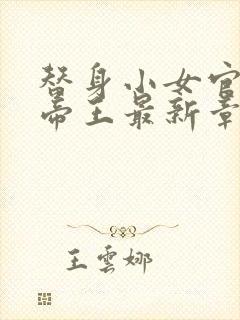 替身小女官
帝王最新章
王雲娜